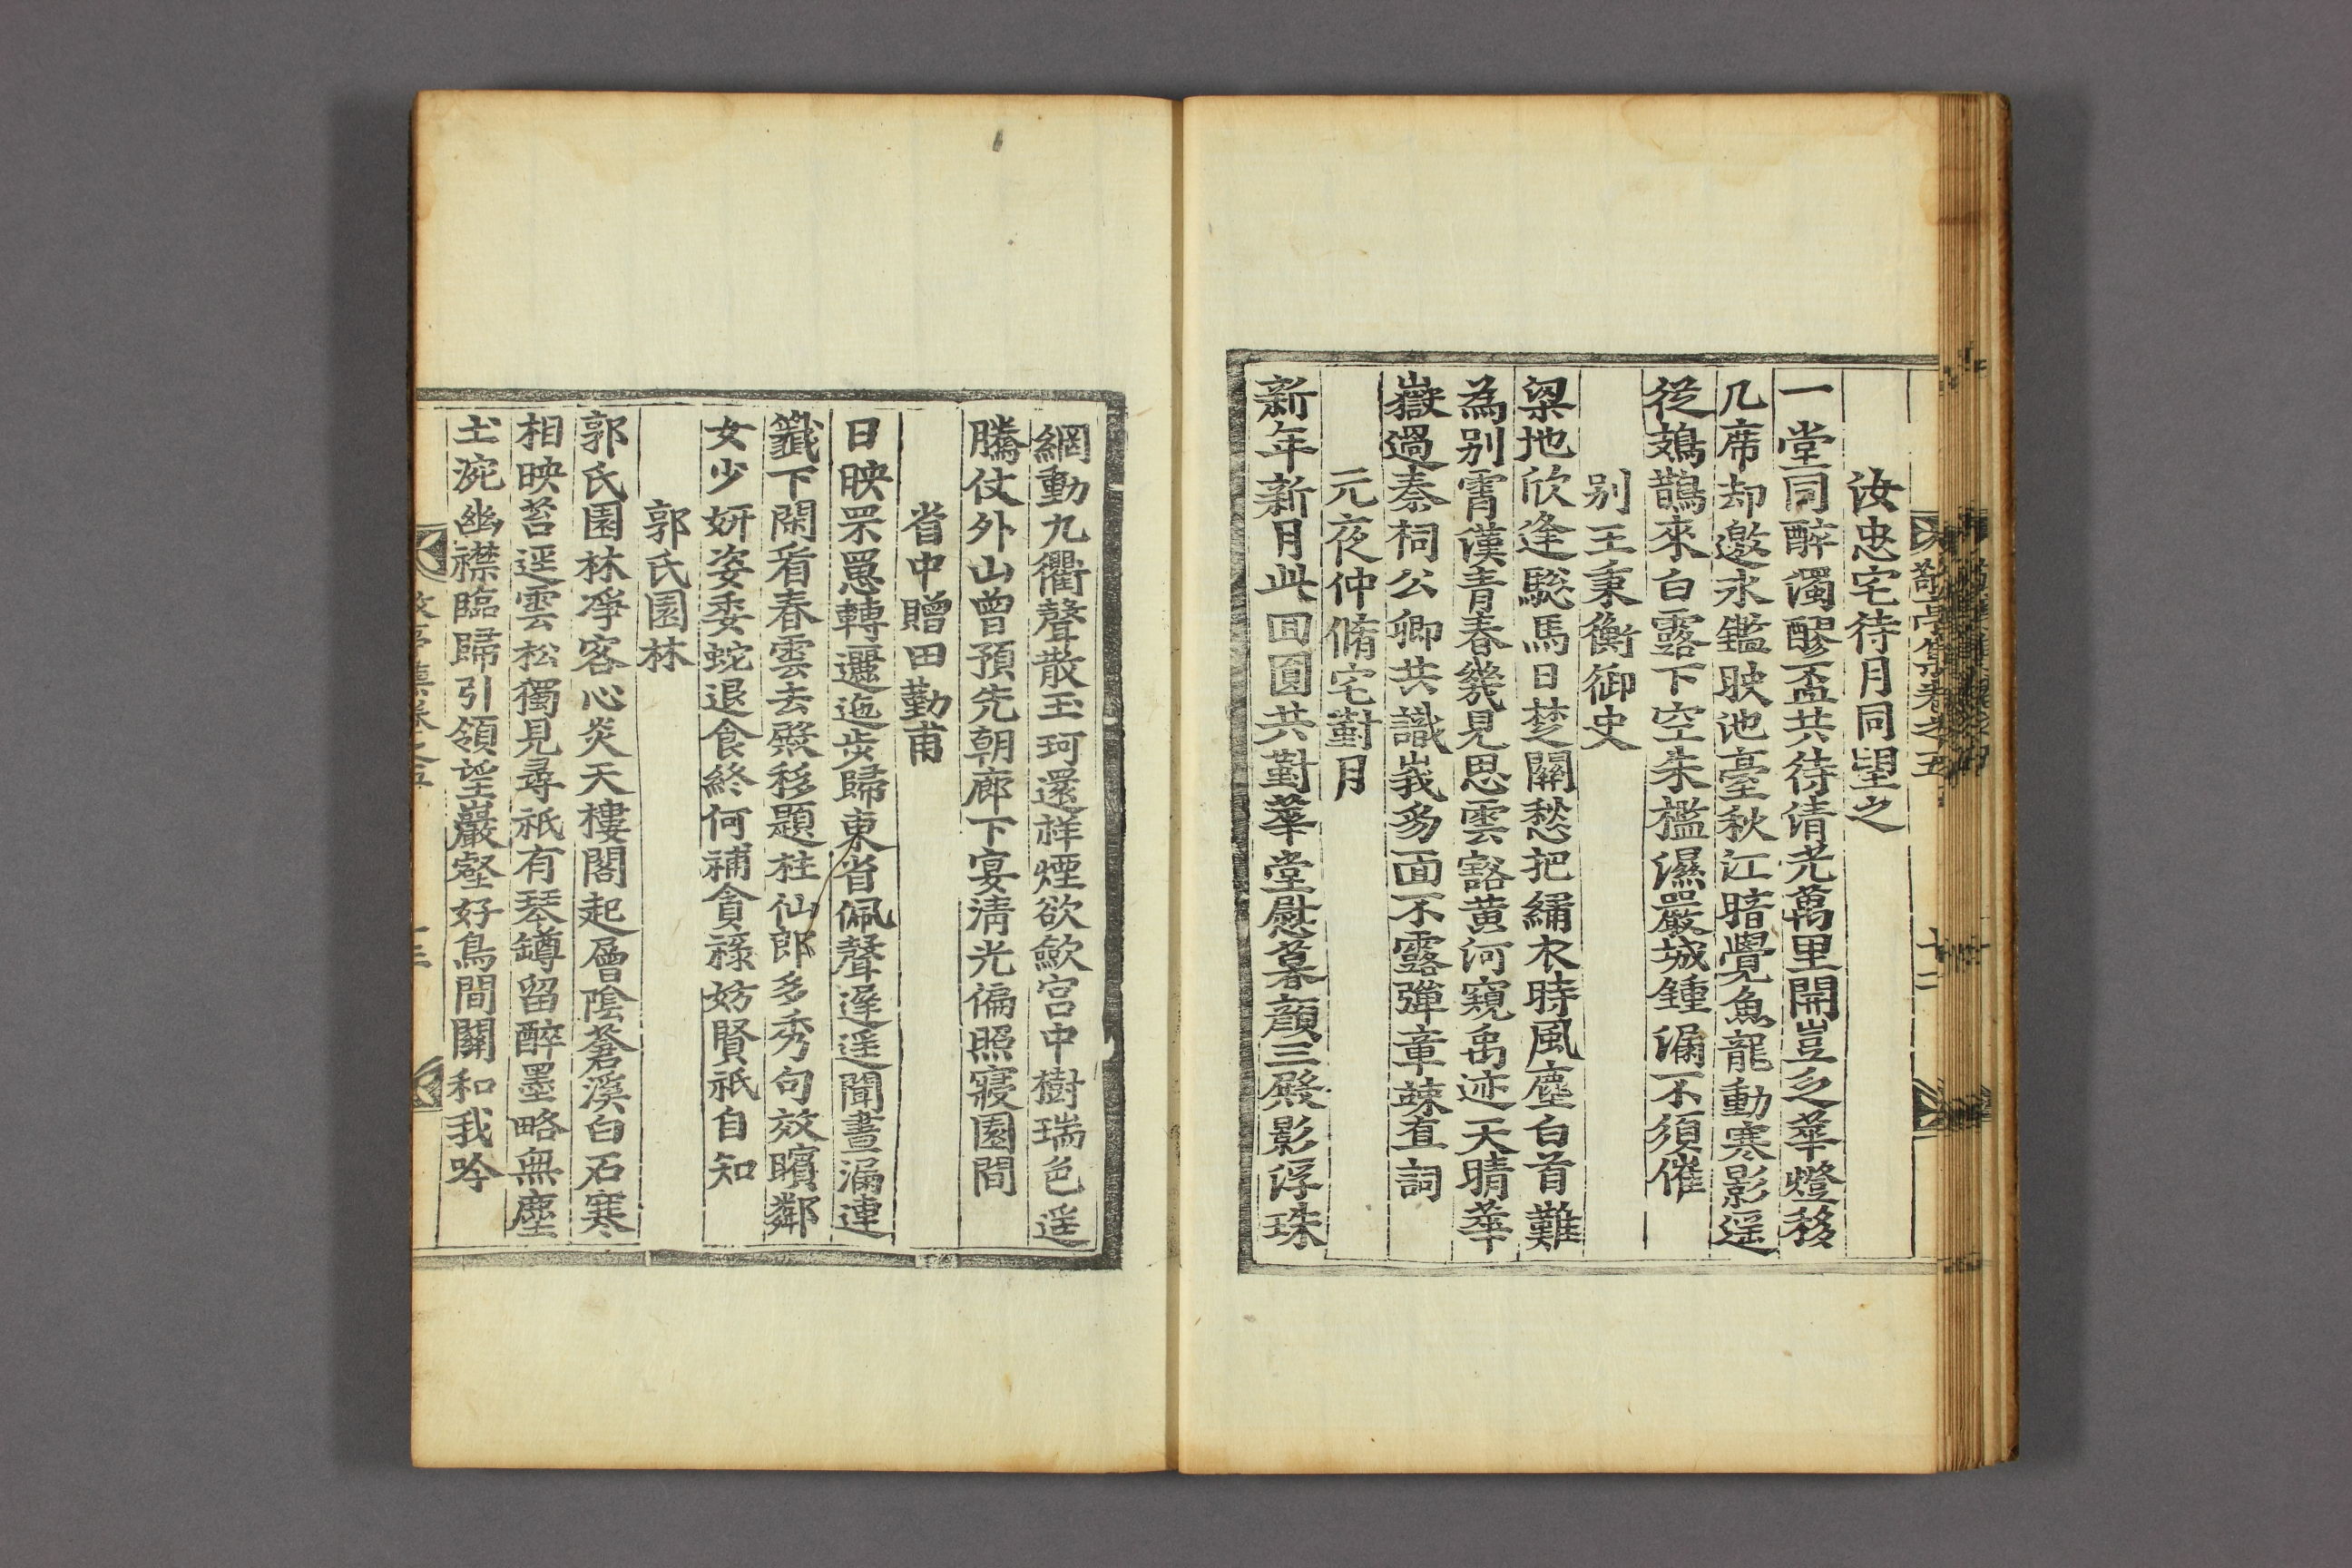 汝忠宅待月同望之
一堂同醉濁醪盃共待清光萬里開豈乏華燈移
几席却邀水鑑映池臺秋江暗覺魚龍動寒影遥
從鵁鶄來白露下空朱檻濕嚴城鍾漏不須催
别王秉衡御史
梁地欣逢驄馬日楚關愁把繡衣時風塵白首難
為别霄漢青春幾見思雲豁黄河窺禹迹天晴華
嶽過秦祠公卿共識峩豸面不露彈章諫直詞
元夜仲脩宅對月
新年新月此回圓共對華堂慰暮顔三殿影浮珠
網動九衢聲散玉珂還祥煙欲歛宫中樹瑞色遥
騰仗外山曾預先朝廊下宴清光偏照寢園間
省中贈田勤甫
日映罘罳轉邐迤歩歸東省佩聲遲遥聞晝漏連
籤下閑看春雲去殿移題柱仙郎多秀句效矉鄰
女少妍姿委蛇退食終何補貪祿妨賢祇自知
郭氏園林
郭氏園林凈客心炎天樓閣起層陰蒼溪白石寒
相映苔逕雲松獨見尋祇有琴罇留醉墨略無塵
土涴幽襟臨歸引領望巖壑好鳥間關和我吟